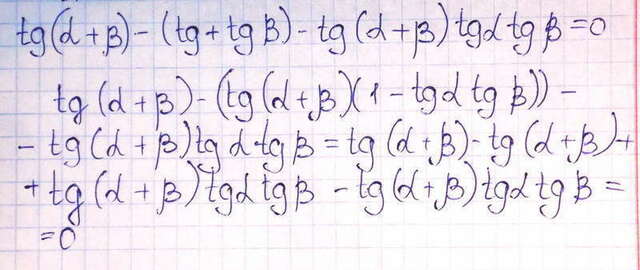 tg(α+β)-(tg+tgβ)-tg(α+β)tgαtgβ=0
tg(α+β)-(tg(α+β)(1-tgαtgβ))-
-tg(α+β)tgα·tgβ=tg(α+β)-tg(α+β)+
+tg(α+β)tgαtgβ-tg(α+β)tgαtgβ=
=0